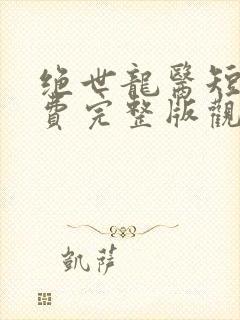 绝世龍醫短
費完整版觀
凱薩